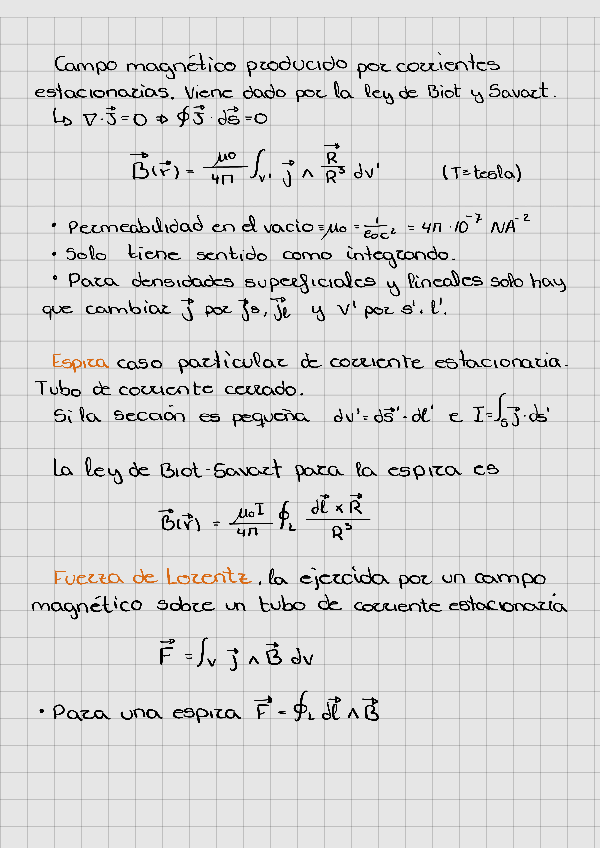 Campo magnético producido por corrientes
estacionarias. Viene dado por la ley de Biot y Savart.
↳ ∇·J⃗=0 ⇒ ∮J⃗·ds⃗=0
B⃗(r⃗) = μ₀/4π ∫_V' j⃗ ∧ R⃗/R³ dv' (T=tesla)
• Permeabilidad en el vacio=μ₀ = 1/ε₀c² = 4π·10⁻⁷ NA⁻²
• Solo tiene sentido como integrando.
• Para densidades superficiales y lineales solo hay
que cambiar j⃗ por j⃗s, j⃗l y v' por s', l'.
Espira caso particular de corriente estacionaria.
Tubo de corriente cerrado.
Si la sección es pequeña dv'=ds⃗'·dl' e I=∫_S j⃗·ds'
La ley de Biot-Savart para la espira es
B⃗(r⃗) = μ₀I/4π ∮_L dl⃗ × R⃗/R³
Fuerza de Lorentz, la ejercida por un campo
magnético sobre un tubo de corriente estacionaria
F⃗ = ∫_V j⃗ ∧ B⃗ dv
• Para una espira F⃗ = ∮_L dl⃗ ∧ B⃗